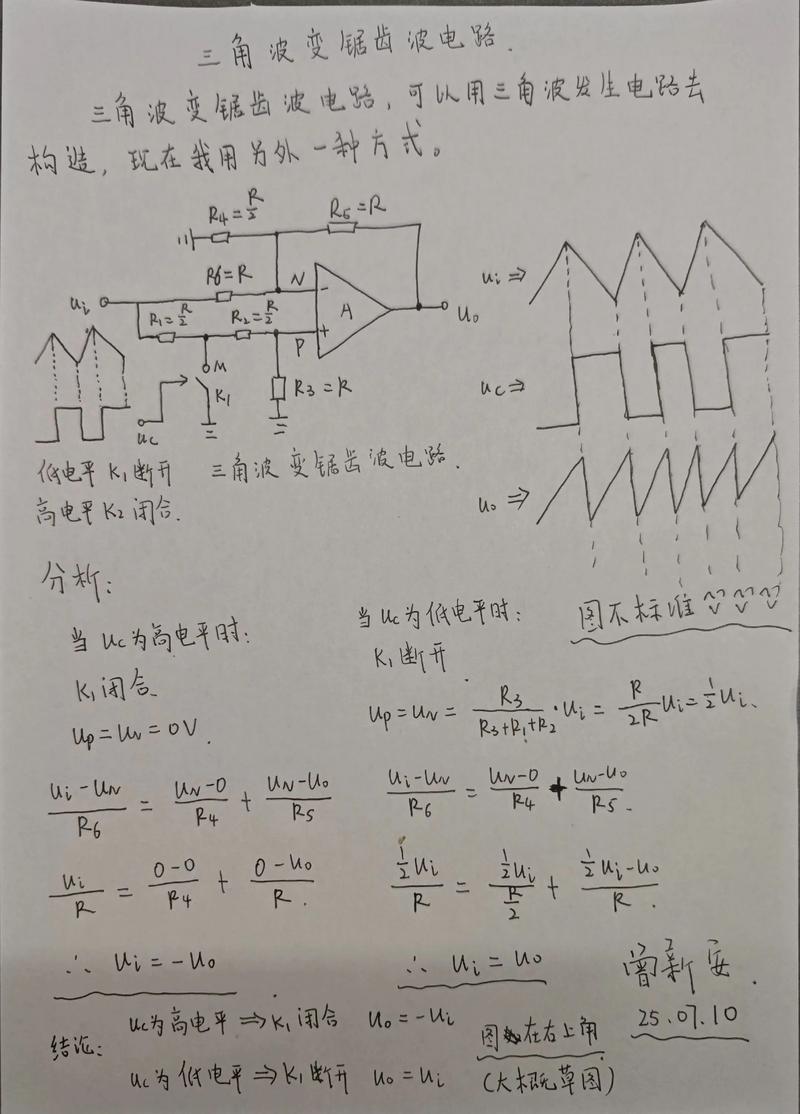 三角波变锯齿波电路.
三角波变锯齿波电路,可以用三角波发生电路去
构造,现在我用另外一种方式。
R4=R/2
R5=R
R6=R
N
-
ui
A
uo
R1=R/2
R2=R/2
P
+
M
K1
R3=R
uc
ui⇒
uc⇒
uo⇒
低电平K1断开
高电平K2闭合.
三角波变锯齿波电路.
图不标准
分析:
当uc为高电平时:
K1闭合.
up=uN=0V.
(ui-uN)/R6 = (uN-0)/R4 + (uN-uo)/R5
ui/R = (0-0)/R4 + (0-uo)/R.
∴ ui=-uo
当uc为低电平时:
K1断开.
up=uN= R3/(R3+R1+R2)·ui= R/2R ui=1/2 ui.
(ui-uN)/R6 = (uN-0)/R4 + (uN-uo)/R5.
(1/2 ui)/R = (1/2 ui)/(R/2) + (1/2 ui-uo)/R.
∴ ui=uo
曾新安.
25.07.10
结论:
uc为高电平⇒K1闭合 uo=-ui
uc为低电平⇒K1断开 uo=ui
图在右上角
(大概草图)